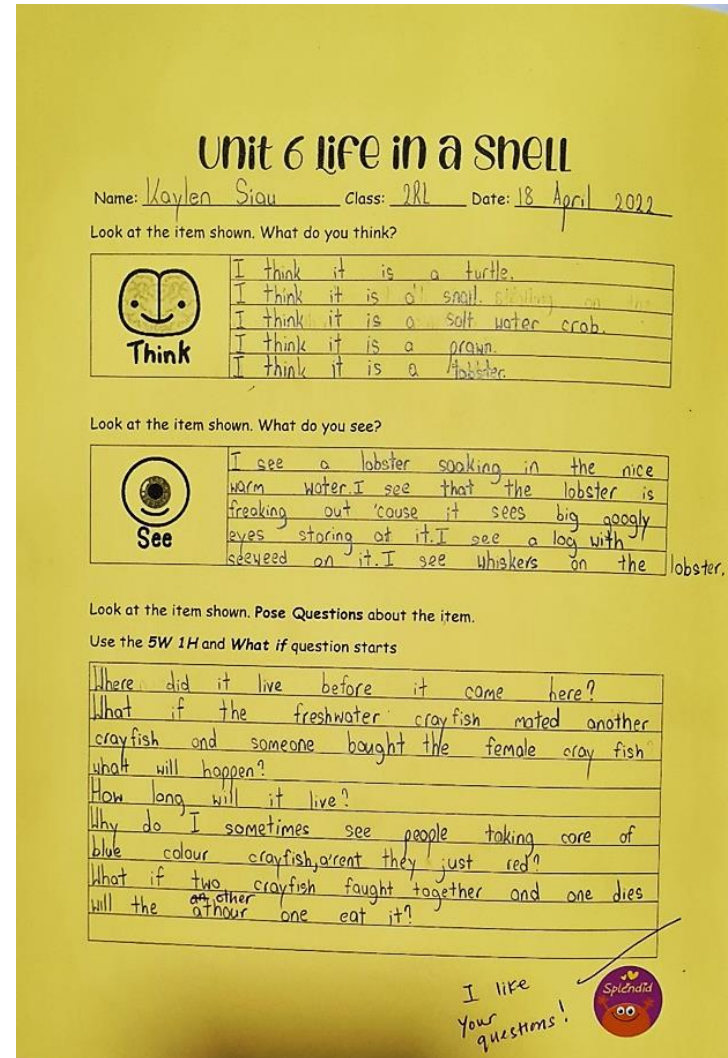 Unit 6 Life in a Shell
Name: Kaylen Siau Class: 2RL Date: 18 April 2022
Look at the item shown. What do you think?
Think
I think it is a turtle.
I think it is a snail.
I think it is a salt water crab.
I think it is a prawn.
I think it is a lobster.
Look at the item shown. What do you see?
See
I see a lobster soaking in the nice
warm water. I see that the lobster is
freaking out 'cause it sees big googly
eyes staring at it. I see a log with
seeweed on it. I see whiskers on the lobster.
Look at the item shown. Pose Questions about the item.
Use the 5W 1H and What if question starts
Where did it live before it came here?
What if the freshwater crayfish mated another
crayfish and someone bought the female cray fish
what will happen?
How long will it live?
Why do I sometimes see people taking care of
blue colour crayfish, a'rent they just red?
What if two crayfish faught together and one dies
other
will the athour one eat it?
I like
your
questions!
Splendid